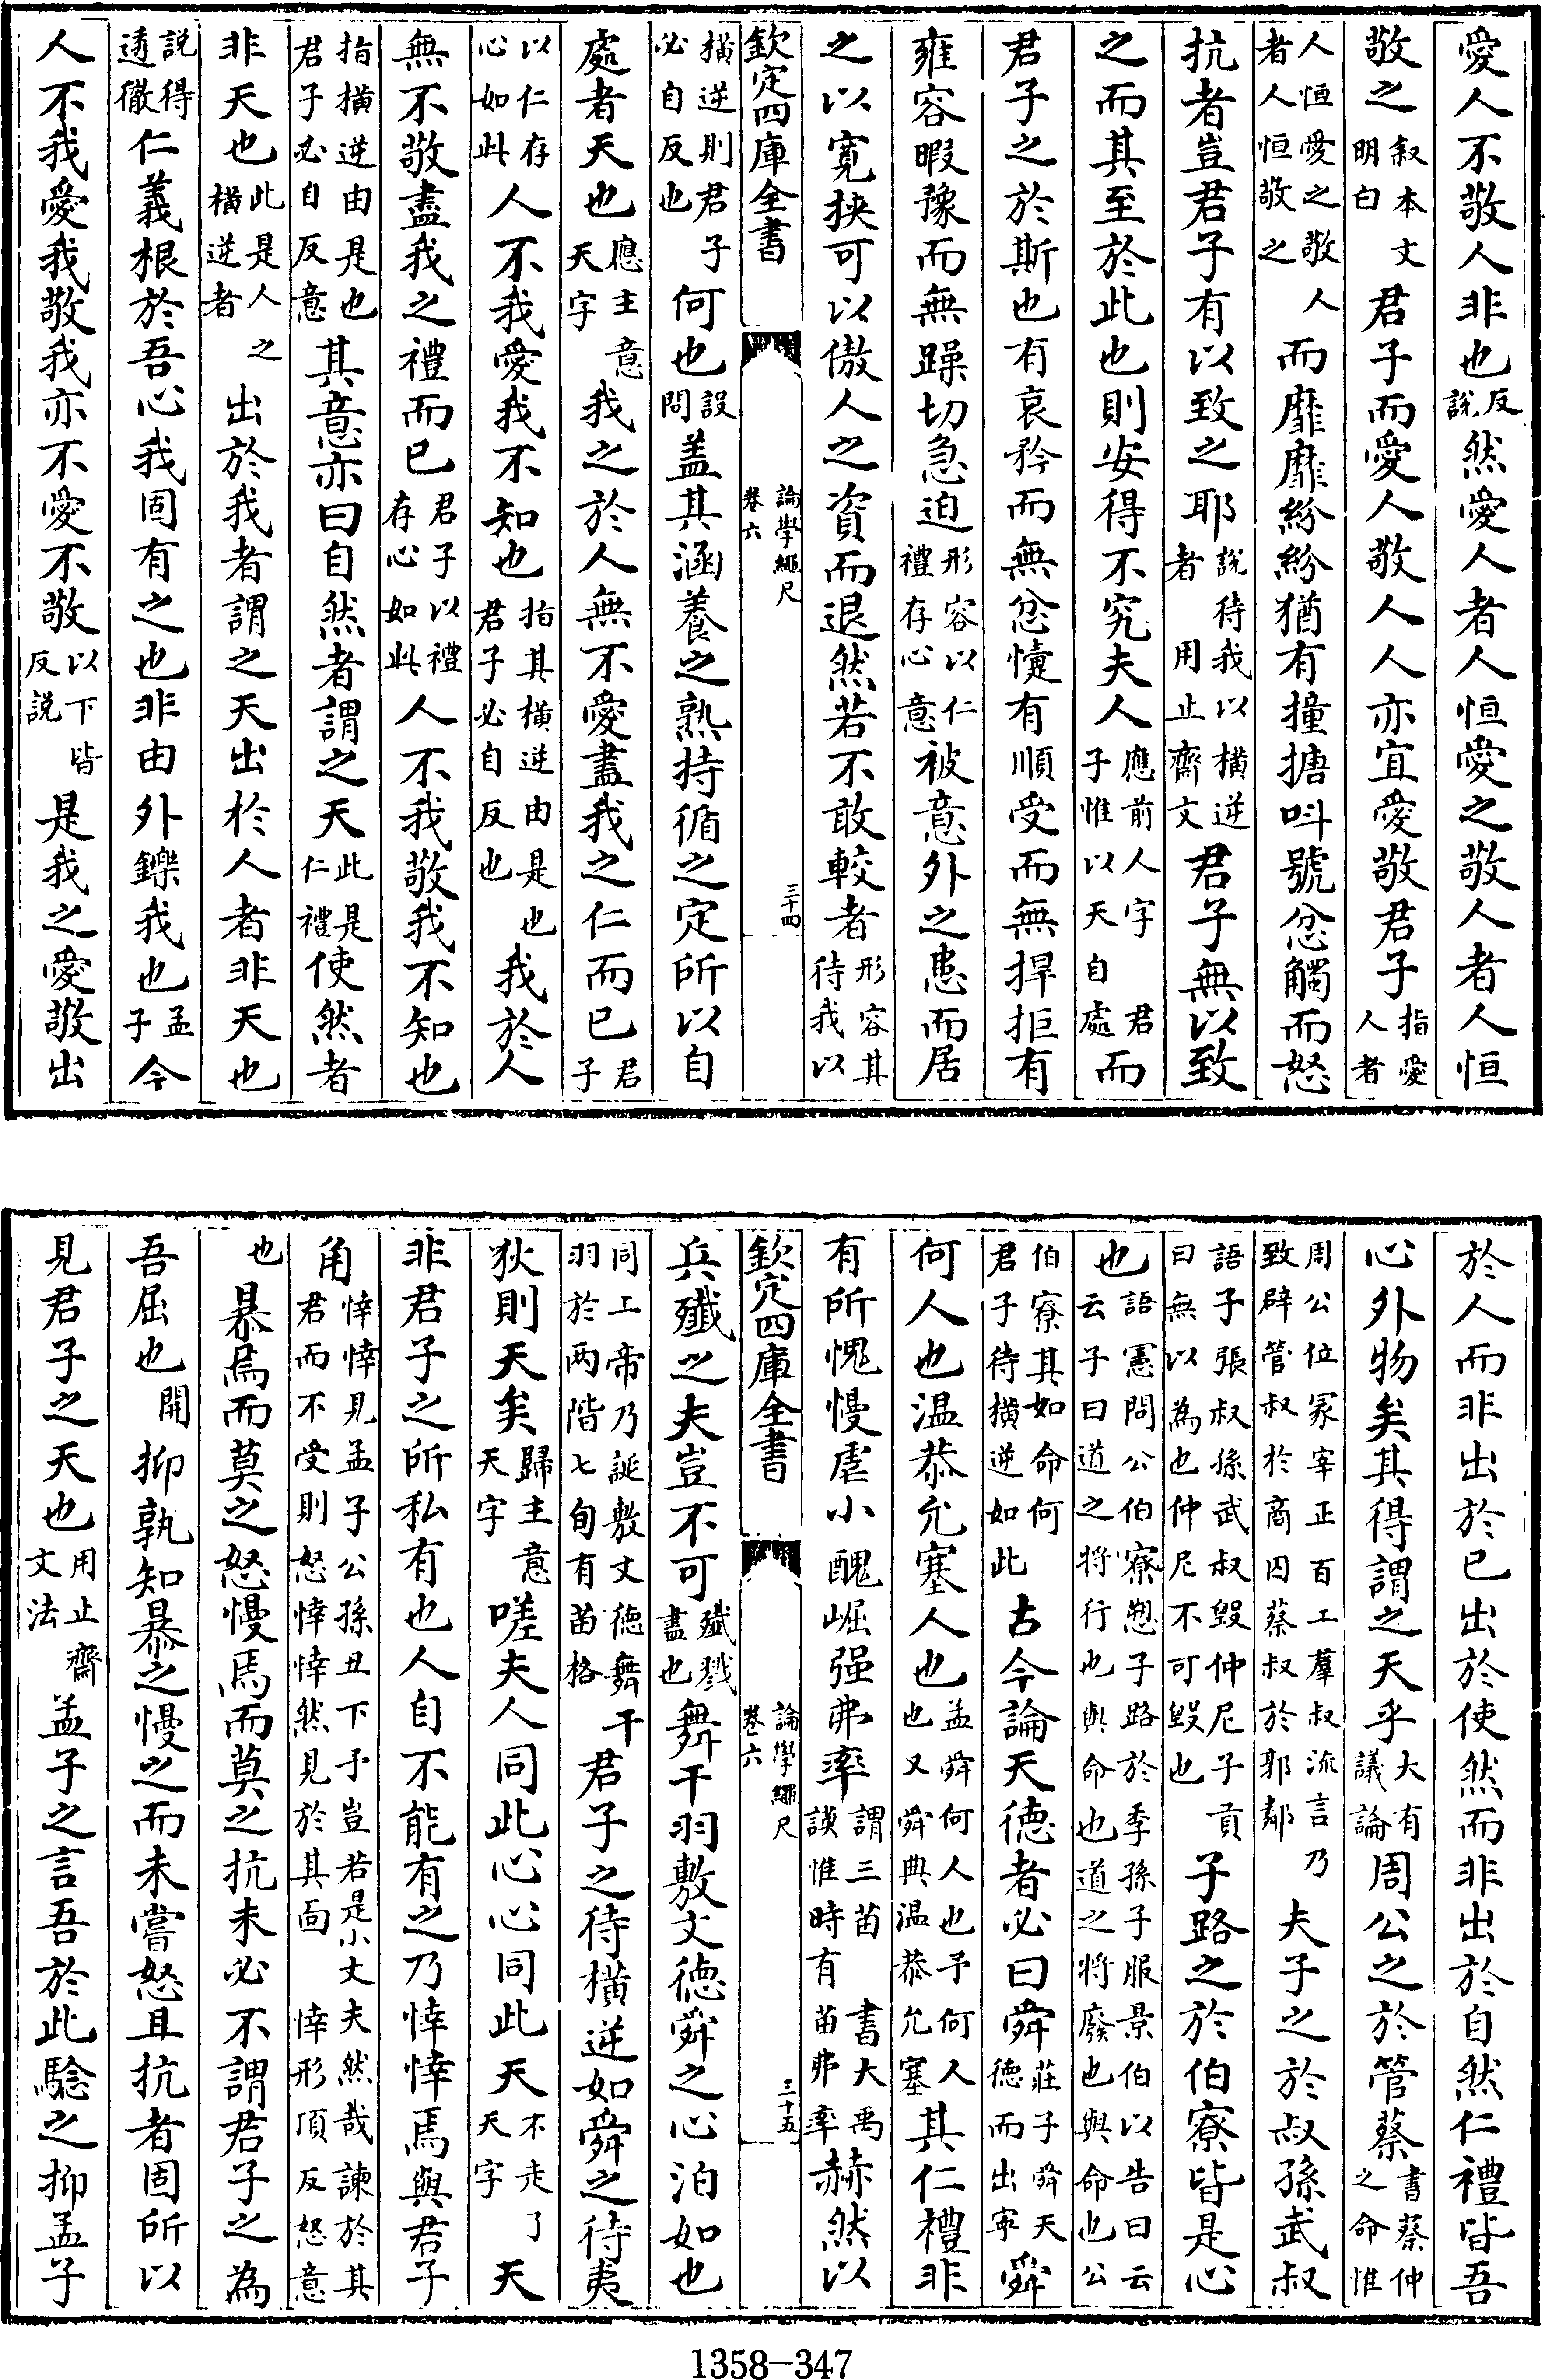 愛人不敬人非也反說然愛人者人恒愛之敬人者人恒
敬之叙本文明白君子而愛人敬人人亦宜愛敬君子指愛人者
人恒愛之敬人者人恒敬之而靡靡紛紛猶有撞搪呌號忿觸而怒
抗者豈君子有以致之耶說待我以橫逆者用止齋文君子無以致
之而其至於此也則安得不究夫人應前人字君子惟以天自處而
君子之於斯也有哀矜而無忿懥有順受而無捍拒有
雍容暇豫而無躁切急迫形容以仁禮存心意被意外之患而居
之以寛挾可以傲人之資而退然若不敢較者形容其待我以
欽定四庫全書 論學繩尺 卷六 三十四
橫逆則君子必自反也何也設問盖其涵養之熟持循之定所以自
處者天也應主意天字我之於人無不愛盡我之仁而已君子
以仁存心如此人不我愛我不知也指其橫逆由是也君子必自反也我於人
無不敬盡我之禮而已君子以禮存心如此人不我敬我不知也
指橫逆由是也君子必自反意其意亦曰自然者謂之天此是仁禮使然者
非天也此是人之橫逆者出於我者謂之天出於人者非天也
說得透徹仁義根於吾心我固有之也非由外鑠我也孟子今
人不我愛我敬我亦不愛不敬以下皆反說是我之愛敬出
於人而非出於已出於使然而非出於自然仁禮皆吾
心外物矣其得謂之天乎大有議論周公之於管蔡書蔡仲之命惟
周公位冢宰正百工羣叔流言乃致辟管叔於商囚蔡叔於郭鄰夫子之於叔孫武叔
語子張叔孫武叔毀仲尼子貢曰無以為也仲尼不可毀也子路之於伯寮皆是心
也語憲問公伯寮愬子路於季孫子服景伯以告曰云云子曰道之将行也與命也道之将廢也與命也公
伯寮其如命何君子待橫逆如此古今論天德者必曰舜莊子舜天德而出寧舜
何人也温恭允塞人也孟舜何人也予何人也又舜典温恭允塞其仁禮非
有所愧慢虐小醜崛强弗率謂三苗書大禹謨惟時有苗弗率赫然以
欽定四庫全書 論學繩尺 卷六 三十五
兵殱之夫豈不可殱戮盡也舞干羽敷文德舜之心泊如也
同上帝乃誕敷文德舞干羽於两階七旬有苗格君子之待橫逆如舜之待夷
狄則天矣歸主意天字嗟夫人同此心心同此天不走了天字天
非君子之所私有也人自不能有之乃悻悻焉與君子
角悻悻見孟子公孫丑下予豈若是小丈夫然哉諫於其君而不受則怒悻悻然見於其面悻形頂反怒意
也暴焉而莫之怒慢焉而莫之抗未必不謂君子之為
吾屈也開抑孰知暴之慢之而未嘗怒且抗者固所以
見君子之天也用止齋文法孟子之言吾於此騐之抑孟子
1358-347